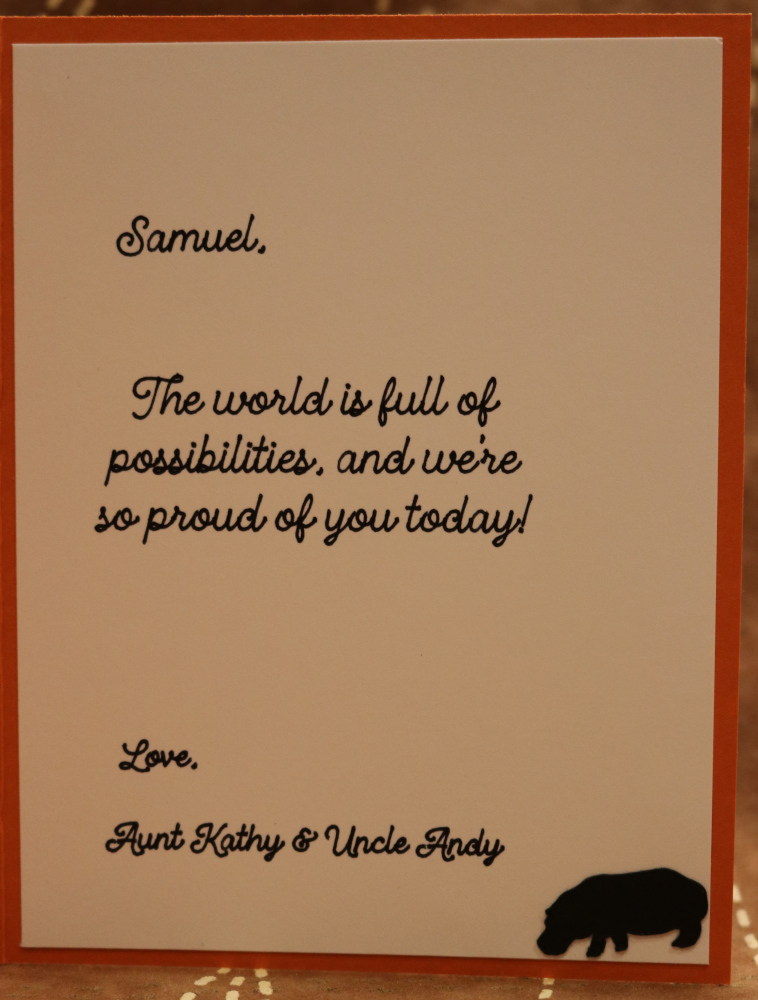 Samuel,
The world is full of
possibilities, and we're
so proud of you today!
Love,
Aunt Kathy & Uncle Andy